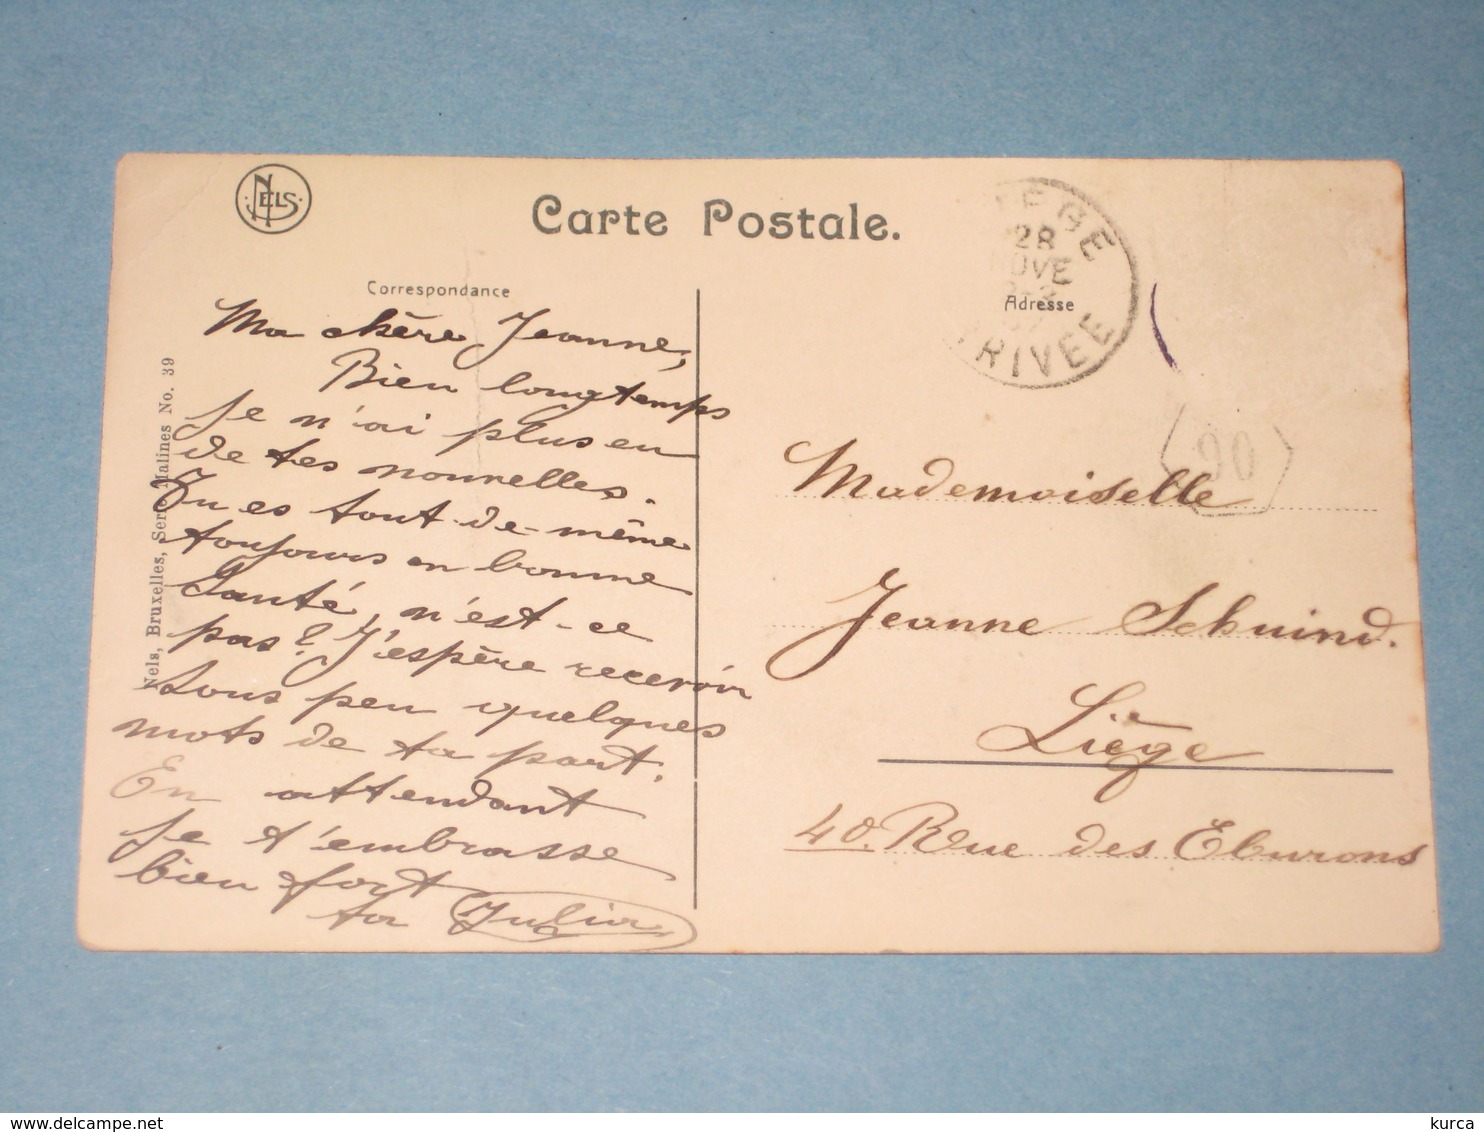 NELS
Carte Postale.
LIEGE
28
NOVE
ARRIVEE
Correspondance
Adresse
90
Ma chère Jeanne,
Bien longtemps
je n'ai plus eu
de tes nouvelles.
Tu es tout-de-même
toujours en bonne
Santé, n'est-ce
pas? J'espère recevoir
sous peu quelques
mots de ta part.
En attendant
je t'embrasse
bien fort
ta Julia
Mademoiselle
Jeanne Schuind.
Liège
40. Rue des Eburons
Nels, Bruxelles, Serie Malines No. 39
delcampe.net
kurca